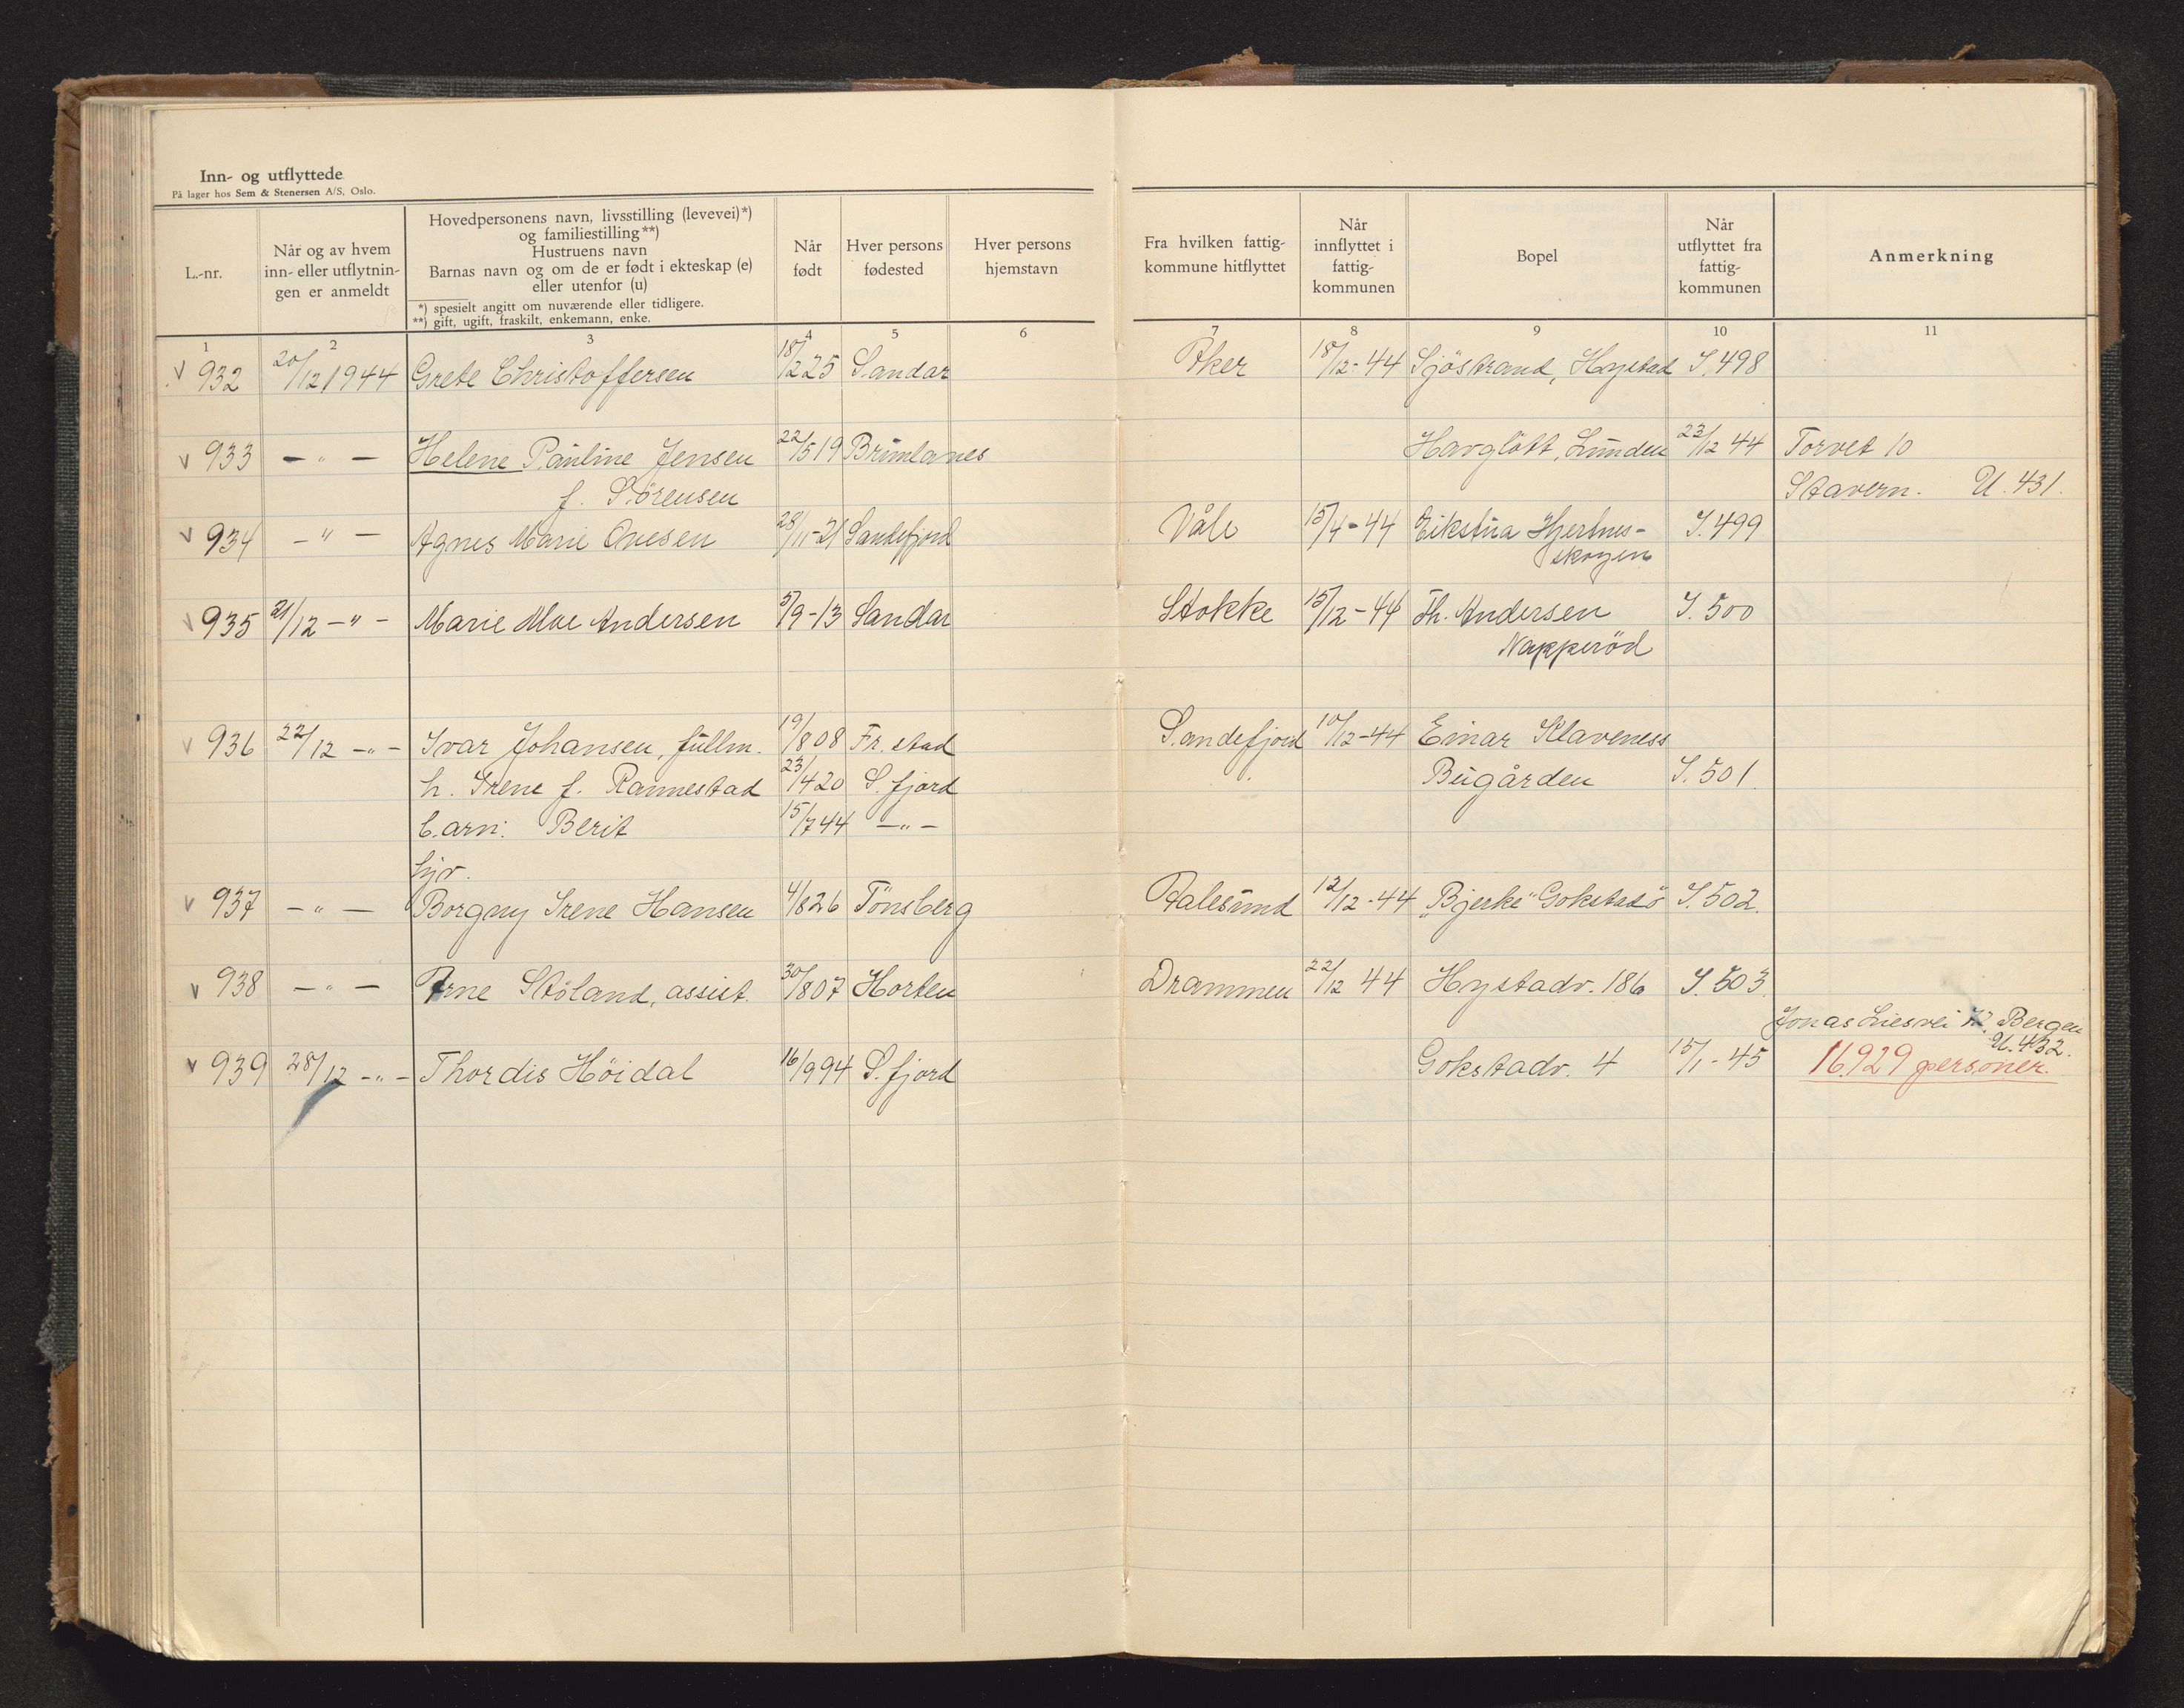 Inn- og utflyttede
På lager hos Sem & Stenersen A/S, Oslo.
L.-nr.
Når og av hvem
inn- eller utflytnin-
gen er anmeldt
Hovedpersonens navn, livsstilling (levevei)*)
og familiestilling**)
Hustruens navn
Barnas navn og om de er født i ekteskap (e)
eller utenfor (u)
*) spesielt angitt om nuværende eller tidligere.
**) gift, ugift, fraskilt, enkemann, enke.
Når
født
Hver persons
fødested
Hver persons
hjemstavn
Fra hvilken fattig-
kommune hitflyttet
Når
innflyttet i
fattig-
kommunen
Bopel
Når
utflyttet fra
fattig-
kommunen
Anmerkning
1 2 3 4 5 6 7 8 9 10 11
v 932 20/12 1944 Grete Christoffersen 18/2 25 Sandar Aker 18/12-44 Sjöstrand, Hystad I. 498
v 933 — " — Helene Pauline Jensen 22/5 19 Brunlanes Havglött, Lunden 23/12 44 Torvet 10
f. Sörensen Stavern. U. 431.
v 934 — " — Agnes Marie Ovesen 28/11-21 Sandefjord Våle 15/4-44 Eikstua Hjertnes- I. 499
skogen
v 935 21/12 — " — Marie Moe Andersen 5/9-13 Sandar Stokke 15/12-44 Th. Andersen I. 500
Napperöd
v 936 22/12 — " — Ivar Johansen, fullm. 19/8 08 Fr.stad Sandefjord 10/12-44 Einar Klaveness
h. Irene f. Rannestad 23/4 20 S.fjord Bugården I. 501.
barn: Berit 15/7 44 — " —
hjv.
v 937 — " — Borgny Irene Hansen 4/8 26 Tönsberg Aalesund 12/12-44 "Bjerke" Gokstadö I. 502.
v 938 — " — Arne Stöland, assist. 30/8 07 Horten Drammen 22/12 44 Hystadv. 186 I. 503.
Jonas Liesvei Bergen
U. 432.
v 939 28/12 — " — Thordis Höidal 16/9 94 S.fjord Gokstadv. 4 15/1-45 16929 personer.